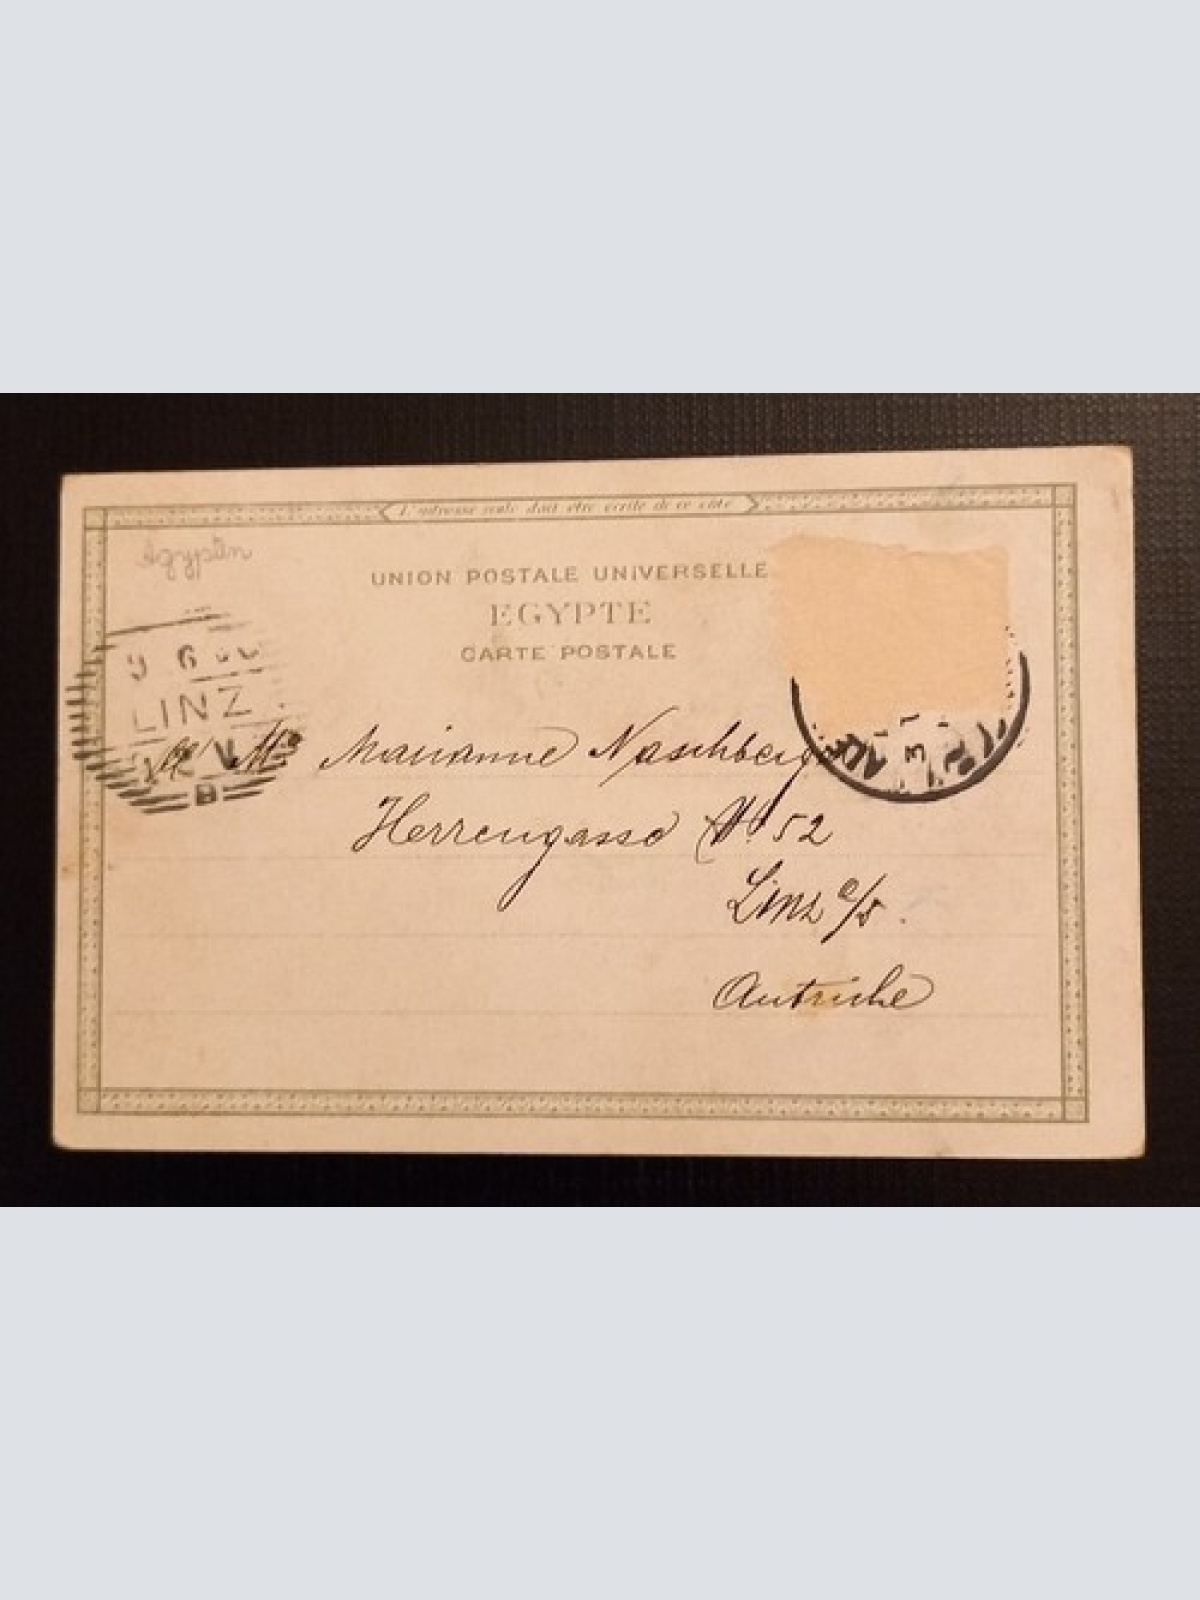 L'adresse seule doit être écrite de ce côté
Ägypten
UNION POSTALE UNIVERSELLE
EGYPTE
CARTE POSTALE
9 6
LINZ
B
Marianne Naschberger
Herrengasse N. 52
Linz a/D.
Autriche